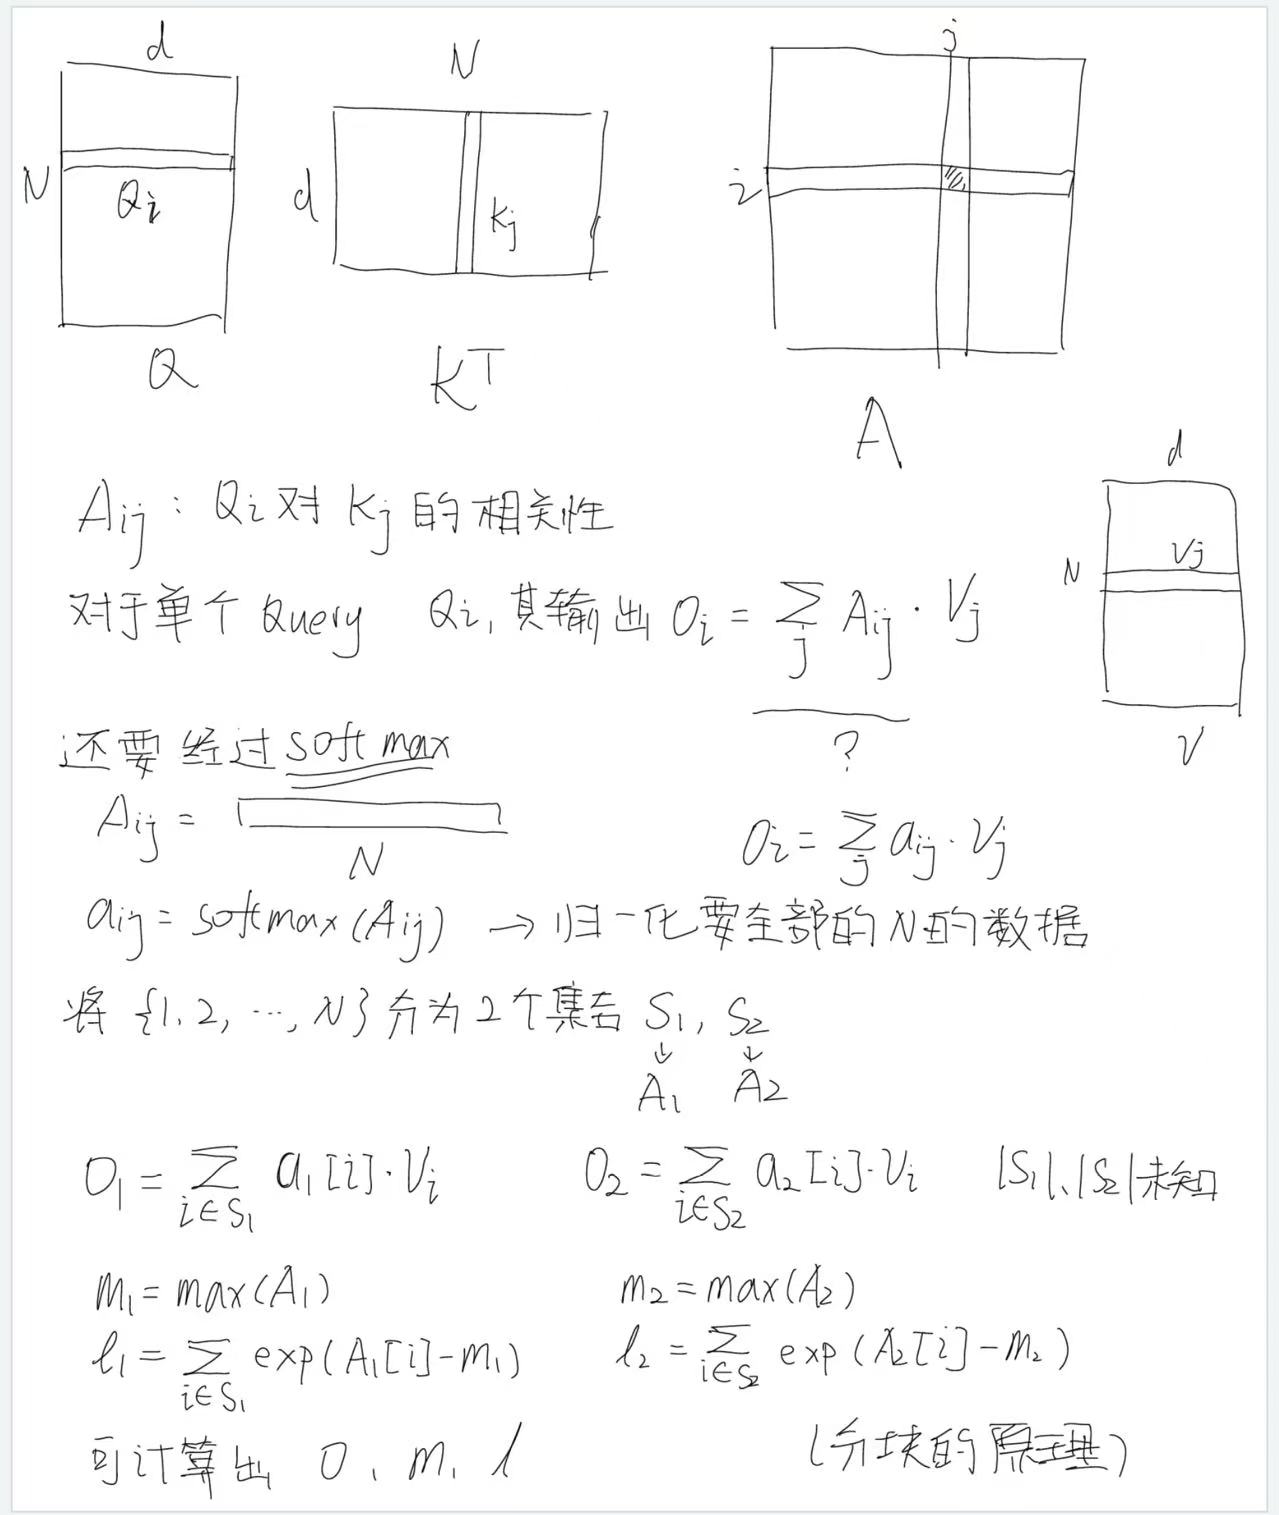 d
N
N
Qi
d
Kj
j
i
Q
K^T
A
Aij : Qi 对 Kj 的相关性
d
N
Vj
V
对于单个 Query Qi, 其输出 Oi = ∑_j Aij · Vj
?
还要经过softmax
Aij =
N
Oi = ∑_j aij · Vj
aij = softmax(Aij) → 归一化要全部的N的数据
将 {1, 2, …, N} 分为2个集合 S1, S2
↓ ↓
A1 A2
O1 = ∑_{i∈S1} a1[i]·Vi O2 = ∑_{i∈S2} a2[i]·Vi |S1|、|S2|未知
m1 = max(A1) m2 = max(A2)
l1 = ∑_{i∈S1} exp(A1[i]-m1) l2 = ∑_{i∈S2} exp(A2[i]-m2)
可计算出 O, m, l (分块的原理)